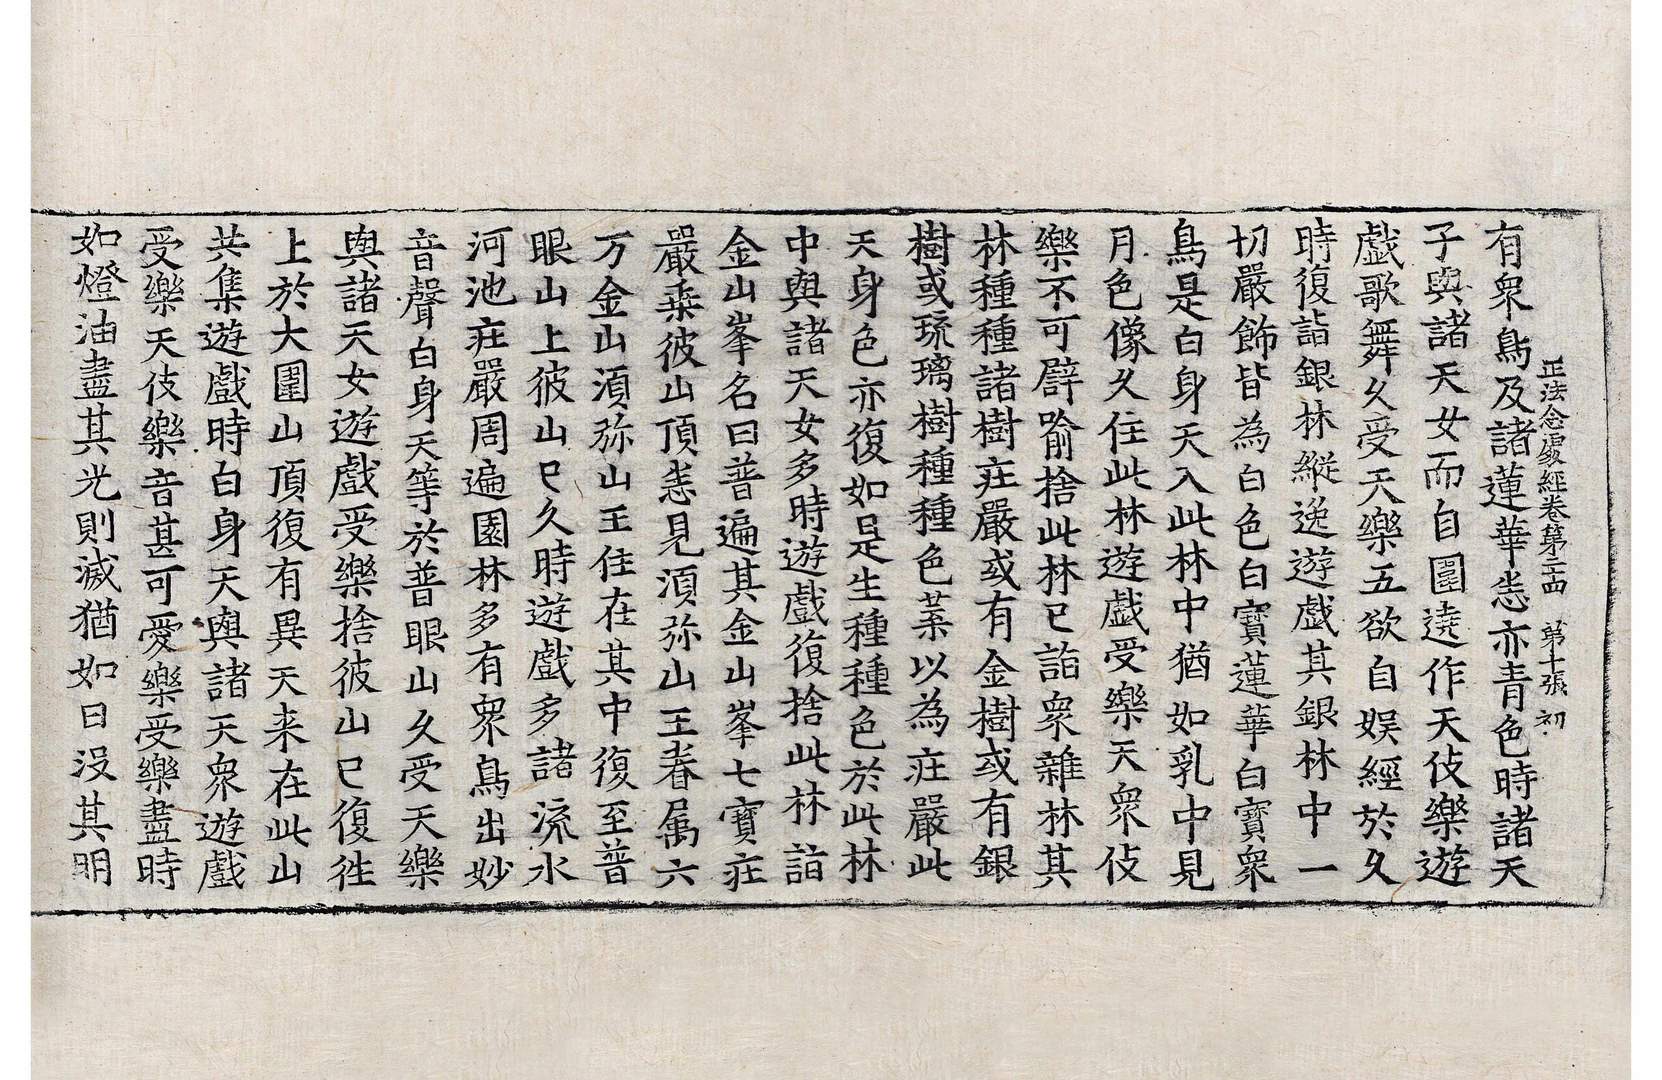 正法念處經卷第二四 第十張 初
有衆鳥及諸蓮華悉亦青色時諸天
子與諸天女而自圍遶作天伎樂遊
戲歌舞久受天樂五欲自娛經於久
時復詣銀林縱逸遊戲其銀林中一
切嚴飾皆為白色白寶蓮華白寶衆
鳥是白身天入此林中猶如乳中見
月色像久住此林遊戲受樂天衆伎
樂不可譬喻捨此林已詣衆雜林其
林種種諸樹莊嚴或有金樹或有銀
樹或琉璃樹種種色菓以為莊嚴此
天身色亦復如是生種種色於此林
中與諸天女多時遊戲復捨此林詣
金山峯名曰普遍其金山峯七寶莊
嚴乗彼山頂悉見湏弥山王眷属六
万金山湏弥山王住在其中復至普
眼山上彼山已久時遊戲多諸流水
河池莊嚴周遍園林多有衆鳥出妙
音聲白身天等於普眼山久受天樂
與諸天女遊戲受樂捨彼山已復往
上於大圍山頂復有異天来在此山
共集遊戲時白身天與諸天衆遊戲
受樂天伎樂音甚可愛樂受樂盡時
如燈油盡其光則滅猶如日没其明